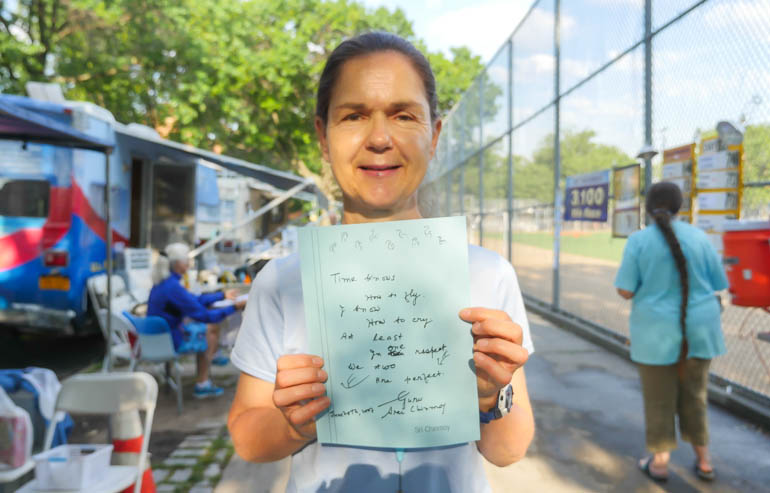 Time knows
How to fly.
I know
How to cry.
At least
In one respect
We two
Are perfect.
Guru
Sri Chinmoy
Sri Chinmoy
3.100